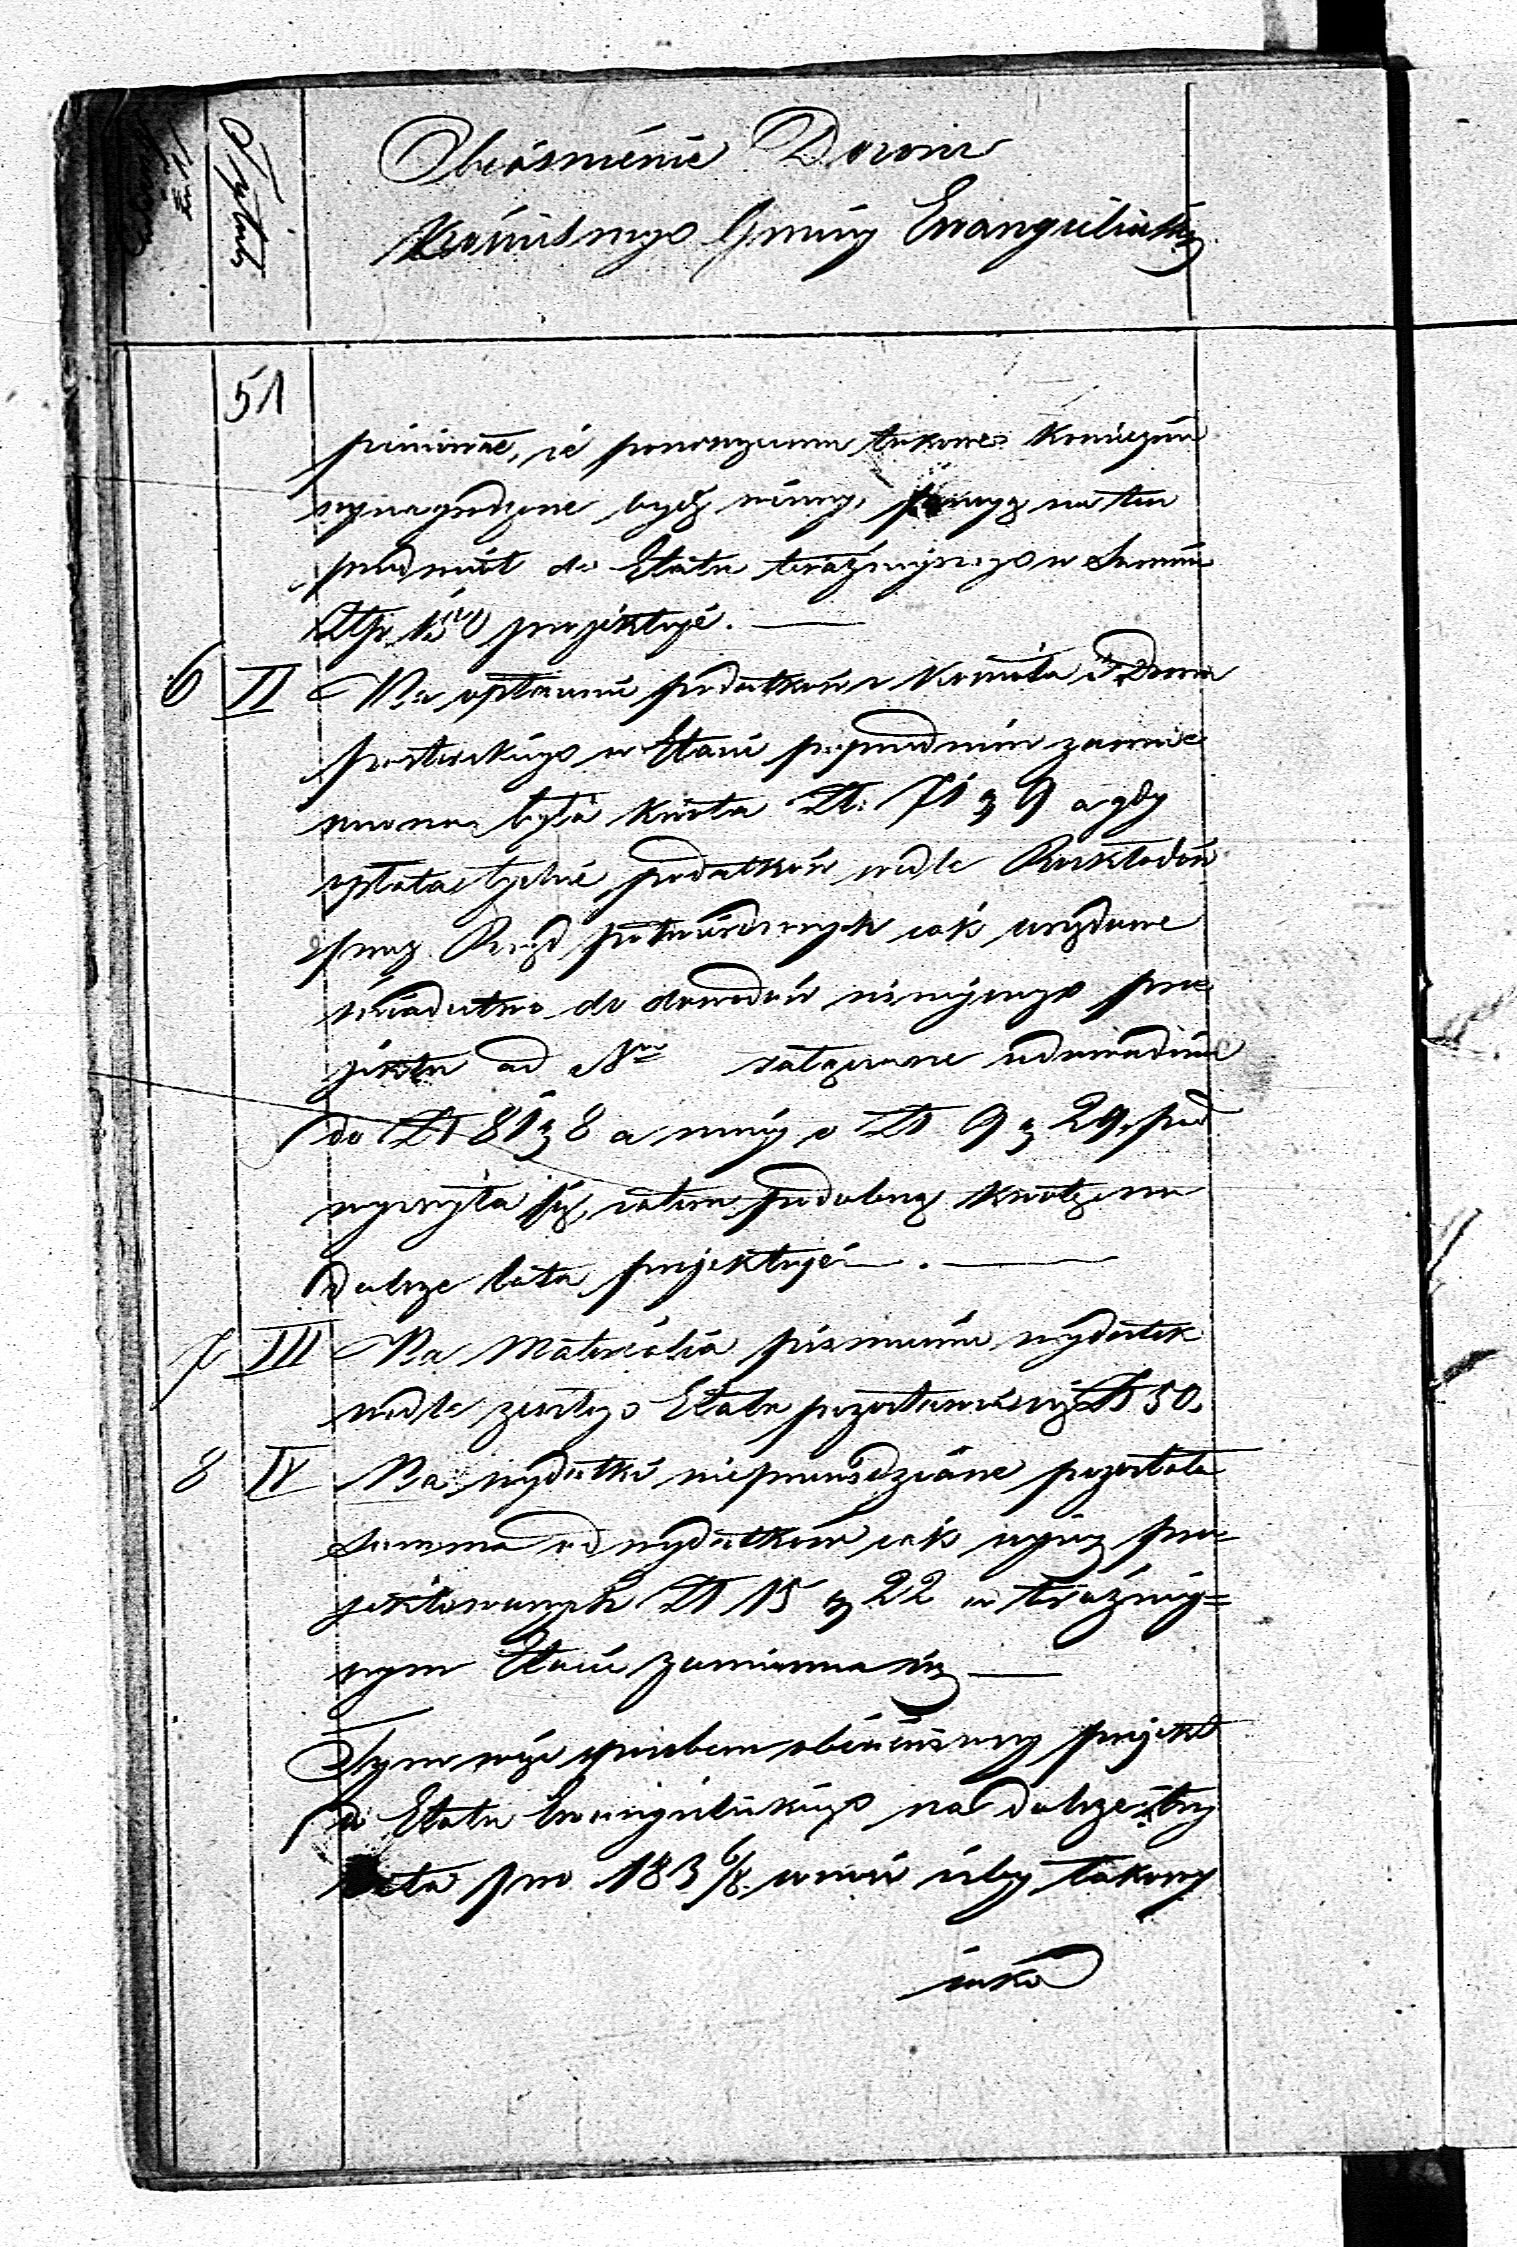 Tytuł
Obiaśnienie Dozoru
Kościelnego Gminy Ewangelickiey
51
ponieważ, że ponoszenia takowe koniecznie
wynagrodzone bydź winny, przeto na ten
przedmiot do Etatu teraźnieyszego w Summie
Złp. projektuje.
6 II Na opłacenie podatków z Kościoła i Domu
pastorskiego w Etacie poprzednim zamie
szczona była kwota Zł: 71 g 9 a gdy
opłata tychże podatków wedle Rozkładów
przez Rząd potwierdzonych iak urzędowe
świadectwo do dowodów ninieyszego pro
jektu ad Nro załączone udowadnia
do Zł 81 g 8 a więc o Zł 9 g 29 pod
wyższyła się, zatem podobną kwotę na
dalsze lata projektuje.
7 III Na Materialia piśmienne wydatek
wedle zeszłego Etatu pozostawia się Zł 50.
8 IV Na wydatki nieprzewidziane pozostała
Summa od wydatków iak wyżey pro=
jektowanych Zł 15 g 22 w teraźniey=
szym Etacie zamieszcza się
Tym więc sposobem obiaśniony projekt
do Etatu Ewangelickiego na dalsze trzy
lata pro 183 6/8. wnosi ażeby takowy
iako